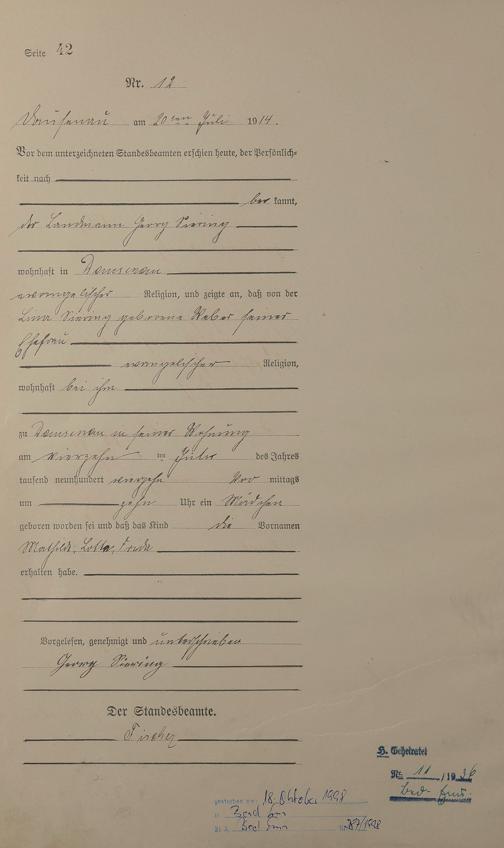 Seite 42
Nr. 12
Dausenau am 20ten Juli 1914.
Vor dem unterzeichneten Standesbeamten erschien heute, der Persönlich=
keit nach
be kannt,
der Landmann Georg Siering
wohnhaft in Dausenau
evangelischer Religion, und zeigte an, daß von der
Lina Siering geborene Weber seiner
Ehefrau
evangelischer Religion,
wohnhaft bei ihm
zu Dausenau in seiner Wohnung
am vierzehn ten Juli des Jahres
tausend neunhundert vierzehn Vor mittags
um zehn Uhr ein Mädchen
geboren worden sei und daß das Kind die Vornamen
Mathilde, Lotte, Frieda
erhalten habe.
Vorgelesen, genehmigt und unterschrieben
Georg Siering
Der Standesbeamte.
Fischer
H. Geheiratet
Nr. 11 / 1936
Bad Ems.
gestorben am: 18. Oktober 1998
in Bad Ems
Bad Ems Nr. 87/1998